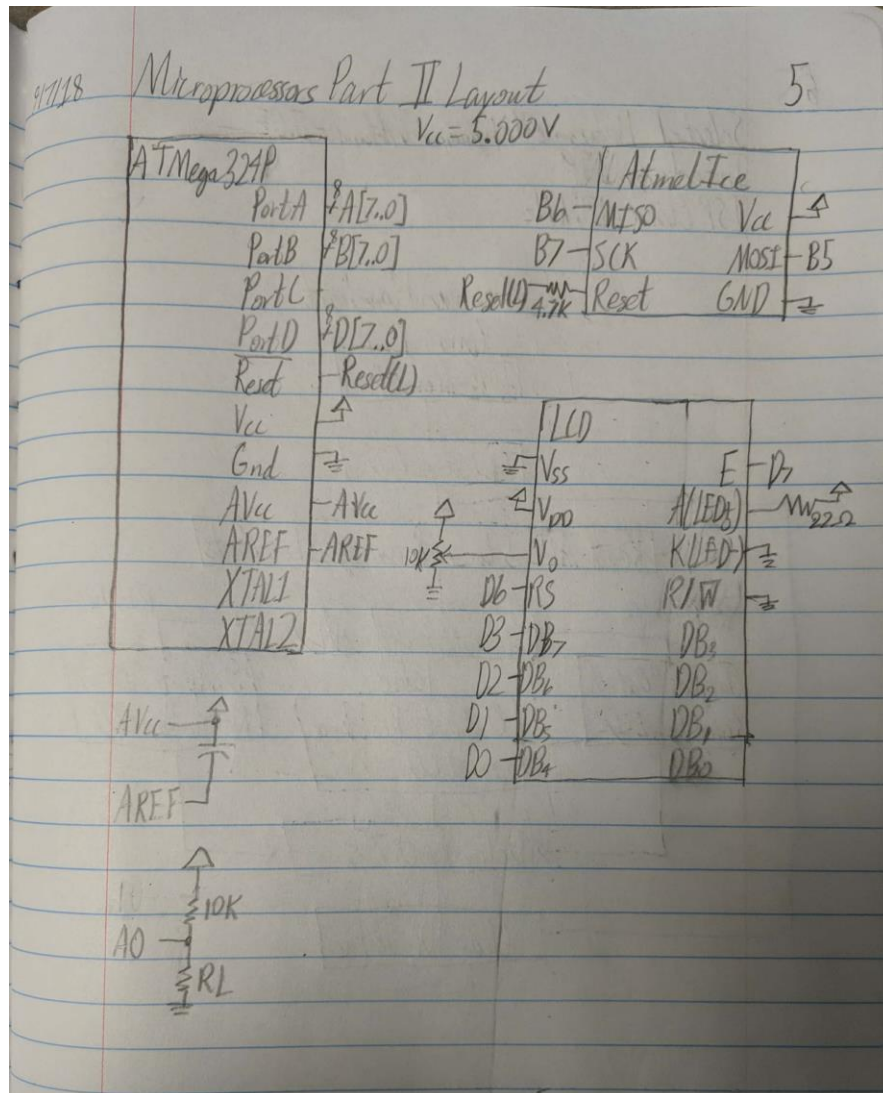 9/7/18 Microprocessors Part II Layout 5
Vcc = 5.000V
ATMega324P
PortA 8 A[7..0]
PortB 8 B[7..0]
PortC
PortD 8 D[7..0]
Reset Reset(L)
Vcc
Gnd
AVcc AVcc
AREF AREF
XTAL1
XTAL2
AtmelIce
B6 MISO Vcc
B7 SCK MOSI B5
Reset(L) 4.7K Reset GND
LCD
VSS E D7
VDD A(LED+) 22Ω
10K V0 K(LED-)
D6 RS R/W
D3 DB7 DB3
D2 DB6 DB2
D1 DB5 DB1
D0 DB4 DB0
AVcc
AREF
10K
A0
RL